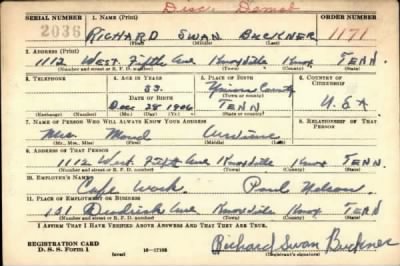 Disc. Demob
SERIAL NUMBER 1. NAME (Print) ORDER NUMBER
2036 RICHARD SWAN BUCKNER 1171
(First) (Middle) (Last)
2. ADDRESS (Print)
1112 WEST Fifth Ave Knoxville Knox TENN.
(Number and street or R. F. D. number) (Town) (County) (State)
3. TELEPHONE 4. AGE IN YEARS 5. PLACE OF BIRTH 6. COUNTRY OF CITIZENSHIP
33. Union County
DATE OF BIRTH (Town or county)
Dec 28 1906 TENN U.S.A
(Exchange) (Number) (Mo.) (Day) (Yr.) (State or country)
7. NAME OF PERSON WHO WILL ALWAYS KNOW YOUR ADDRESS 8. RELATIONSHIP OF THAT PERSON
Mrs. Maud
(Mr., Mrs., Miss) (First) (Middle) (Last)
9. ADDRESS OF THAT PERSON
1112 West Fifth Ave Knoxville Knox TENN
(Number and street or R. F. D. number) (Town) (County) (State)
10. EMPLOYER'S NAME
Cafe Work. Paul Nelson.
11. PLACE OF EMPLOYMENT OR BUSINESS
101 Broadrick Ave Knoxville Knox TENN.
(Number and street or R. F. D. number) (Town) (County) (State)
I AFFIRM THAT I HAVE VERIFIED ABOVE ANSWERS AND THAT THEY ARE TRUE.
REGISTRATION CARD
D. S. S. Form 1 (over) 16—17105 Richard Swan Buckner
(Registrant's signature)